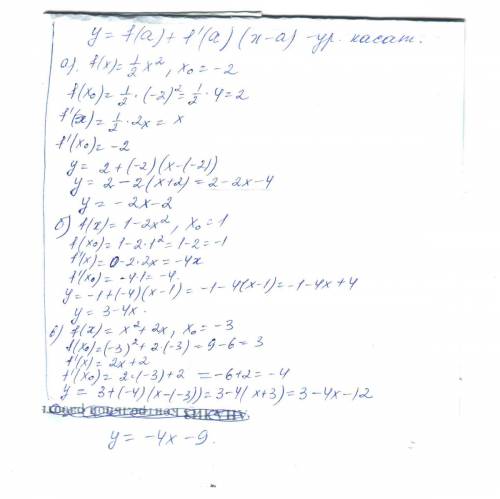 y = f(a) + f'(a) (x-a) - ур. касат.
а). f(x) = 1/2 x², x₀ = -2
f(x₀) = 1/2 · (-2)² = 1/2 · 4 = 2
f'(x) = 1/2 · 2x = x
f'(x₀) = -2
y = 2 + (-2) (x-(-2))
y = 2 - 2(x+2) = 2 - 2x - 4
y = -2x-2
б) f(x) = 1-2x², x₀ = 1
f(x₀) = 1-2·1² = 1-2 = -1
f'(x) = 0-2·2x = -4x
f'(x₀) = -4·1 = -4.
y = -1+(-4)(x-1) = -1-4(x-1) = -1-4x+4
y = 3-4x.
в) f(x) = x²+2x, x₀ = -3
f(x₀) = (-3)²+2·(-3) = 9-6 = 3
f'(x) = 2x+2
f'(x₀) = 2·(-3)+2 = -6+2 = -4
y = 3+(-4)(x-(-3)) = 3-4(x+3) = 3-4x-12
y = -4x-9.